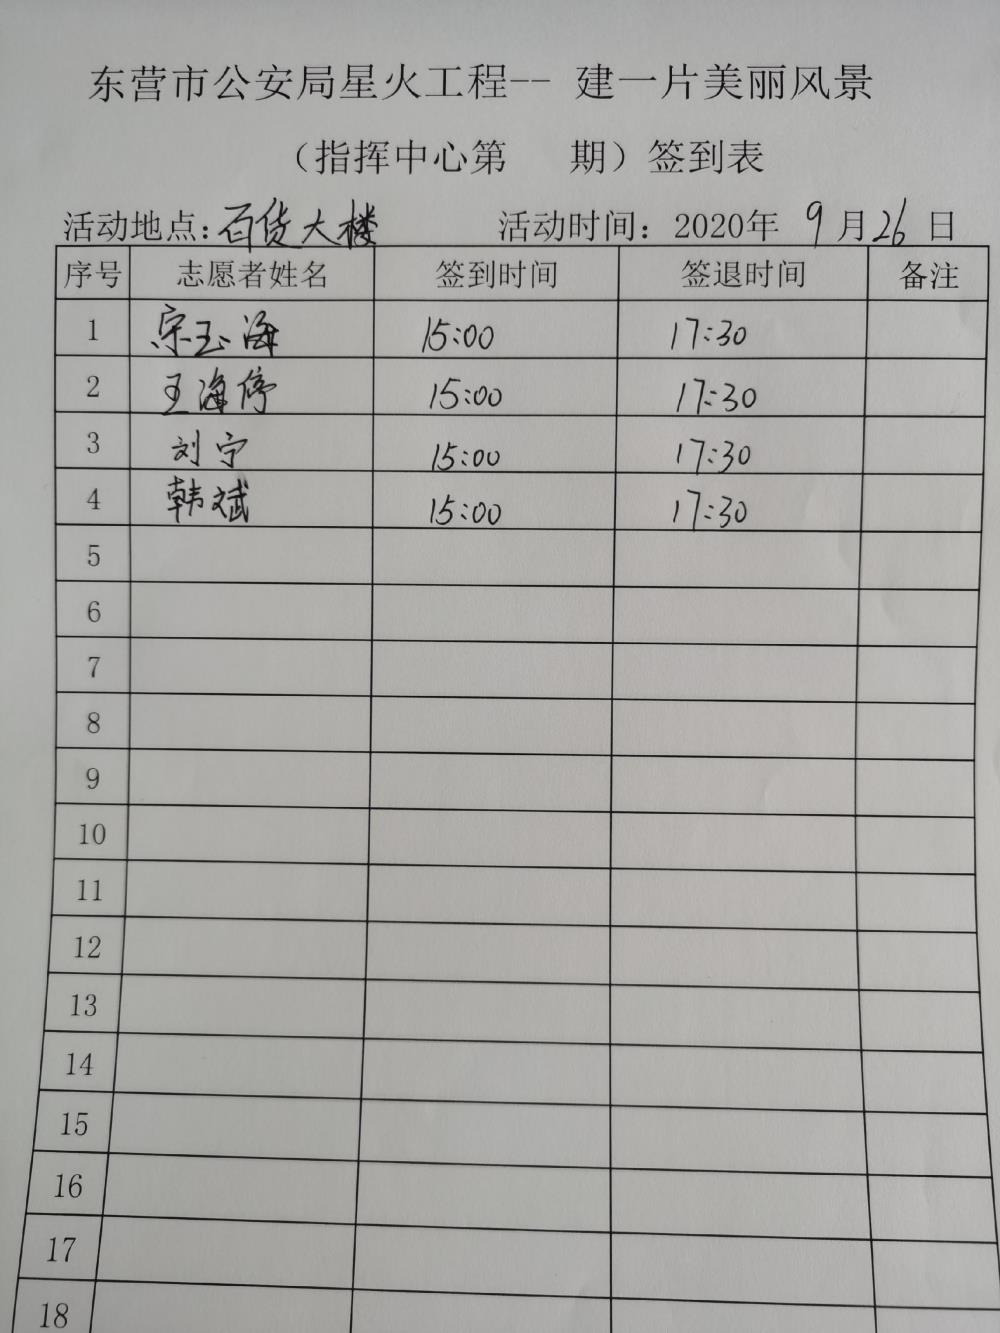 东营市公安局星火工程-- 建一片美丽风景
（指挥中心第 期）签到表
活动地点：百货大楼 活动时间：2020年 9月26日
序号 志愿者姓名 签到时间 签退时间 备注
1 宋玉海 15:00 17:30
2 王海停 15:00 17:30
3 刘宁 15:00 17:30
4 韩斌 15:00 17:30
5
6
7
8
9
10
11
12
13
14
15
16
17
18